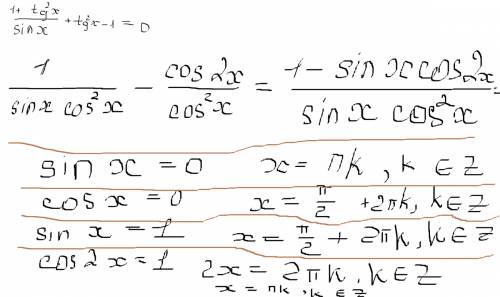 (1 + tg²x)/(sin x) + tg²x - 1 = 0
1/(sin x cos²x) - cos 2x/cos²x = (1 - sin x cos 2x)/(sin x cos²x) =
sin x = 0 x = πk, k ∈ Z
cos x = 0 x = π/2 + 2πk, k ∈ Z
sin x = 1 x = π/2 + 2πk, k ∈ Z
cos 2x = 1 2x = 2πk, k ∈ Z
x = πk, k ∈ Z